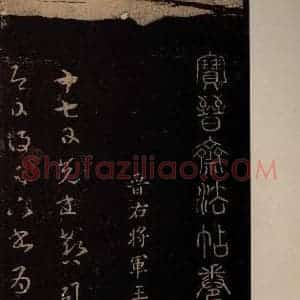 寶晉齋法帖卷
晉右將軍王
十七日先書郗司
日得足下書為
Shufaziliao.com